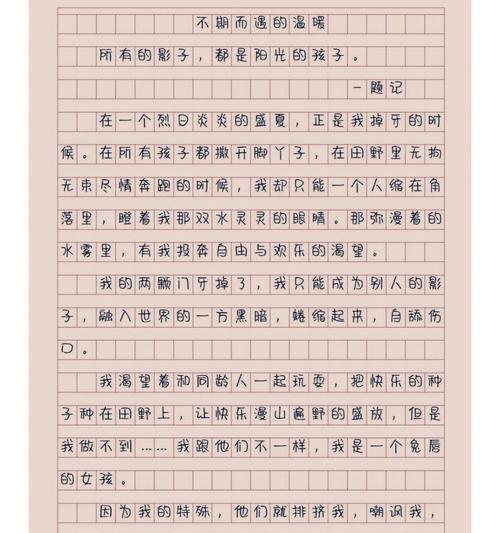 不期而遇的温暖
所有的影子，都是阳光的孩子。
—题记
在一个烈日炎炎的盛夏，正是我掉牙的时
候。在所有孩子都撒开脚丫子，在田野里无拘
无束尽情奔跑的时候，我却只能一个人缩在角
落里，瞪着我那双水灵灵的眼睛。那弥漫着的
水雾里，有我投奔自由与欢乐的渴望。
我的两颗门牙掉了，我只能成为别人的影
子，融入世界的一方黑暗，蜷缩起来，自舔伤
口。
我渴望着和同龄人一起玩耍，把快乐的种
子种在田野上，让快乐漫山遍野的盛放，但是
我做不到……我跟他们不一样，我是一个兔唇
的女孩。
因为我的特殊，他们就排挤我，嘲讽我，